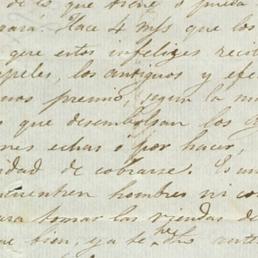 de lo que tiene ó pueda
para. Hace 4 m/s que los
que estos infelizes reci
papeles, los antiguos y efe
mos premio, segun la m
s que desembolsan los
nes echas ó por hacer,
idad de cobrarse. Es
cuentren hombres ni co
ara tomar las riendas de
ue bien, ya te dho